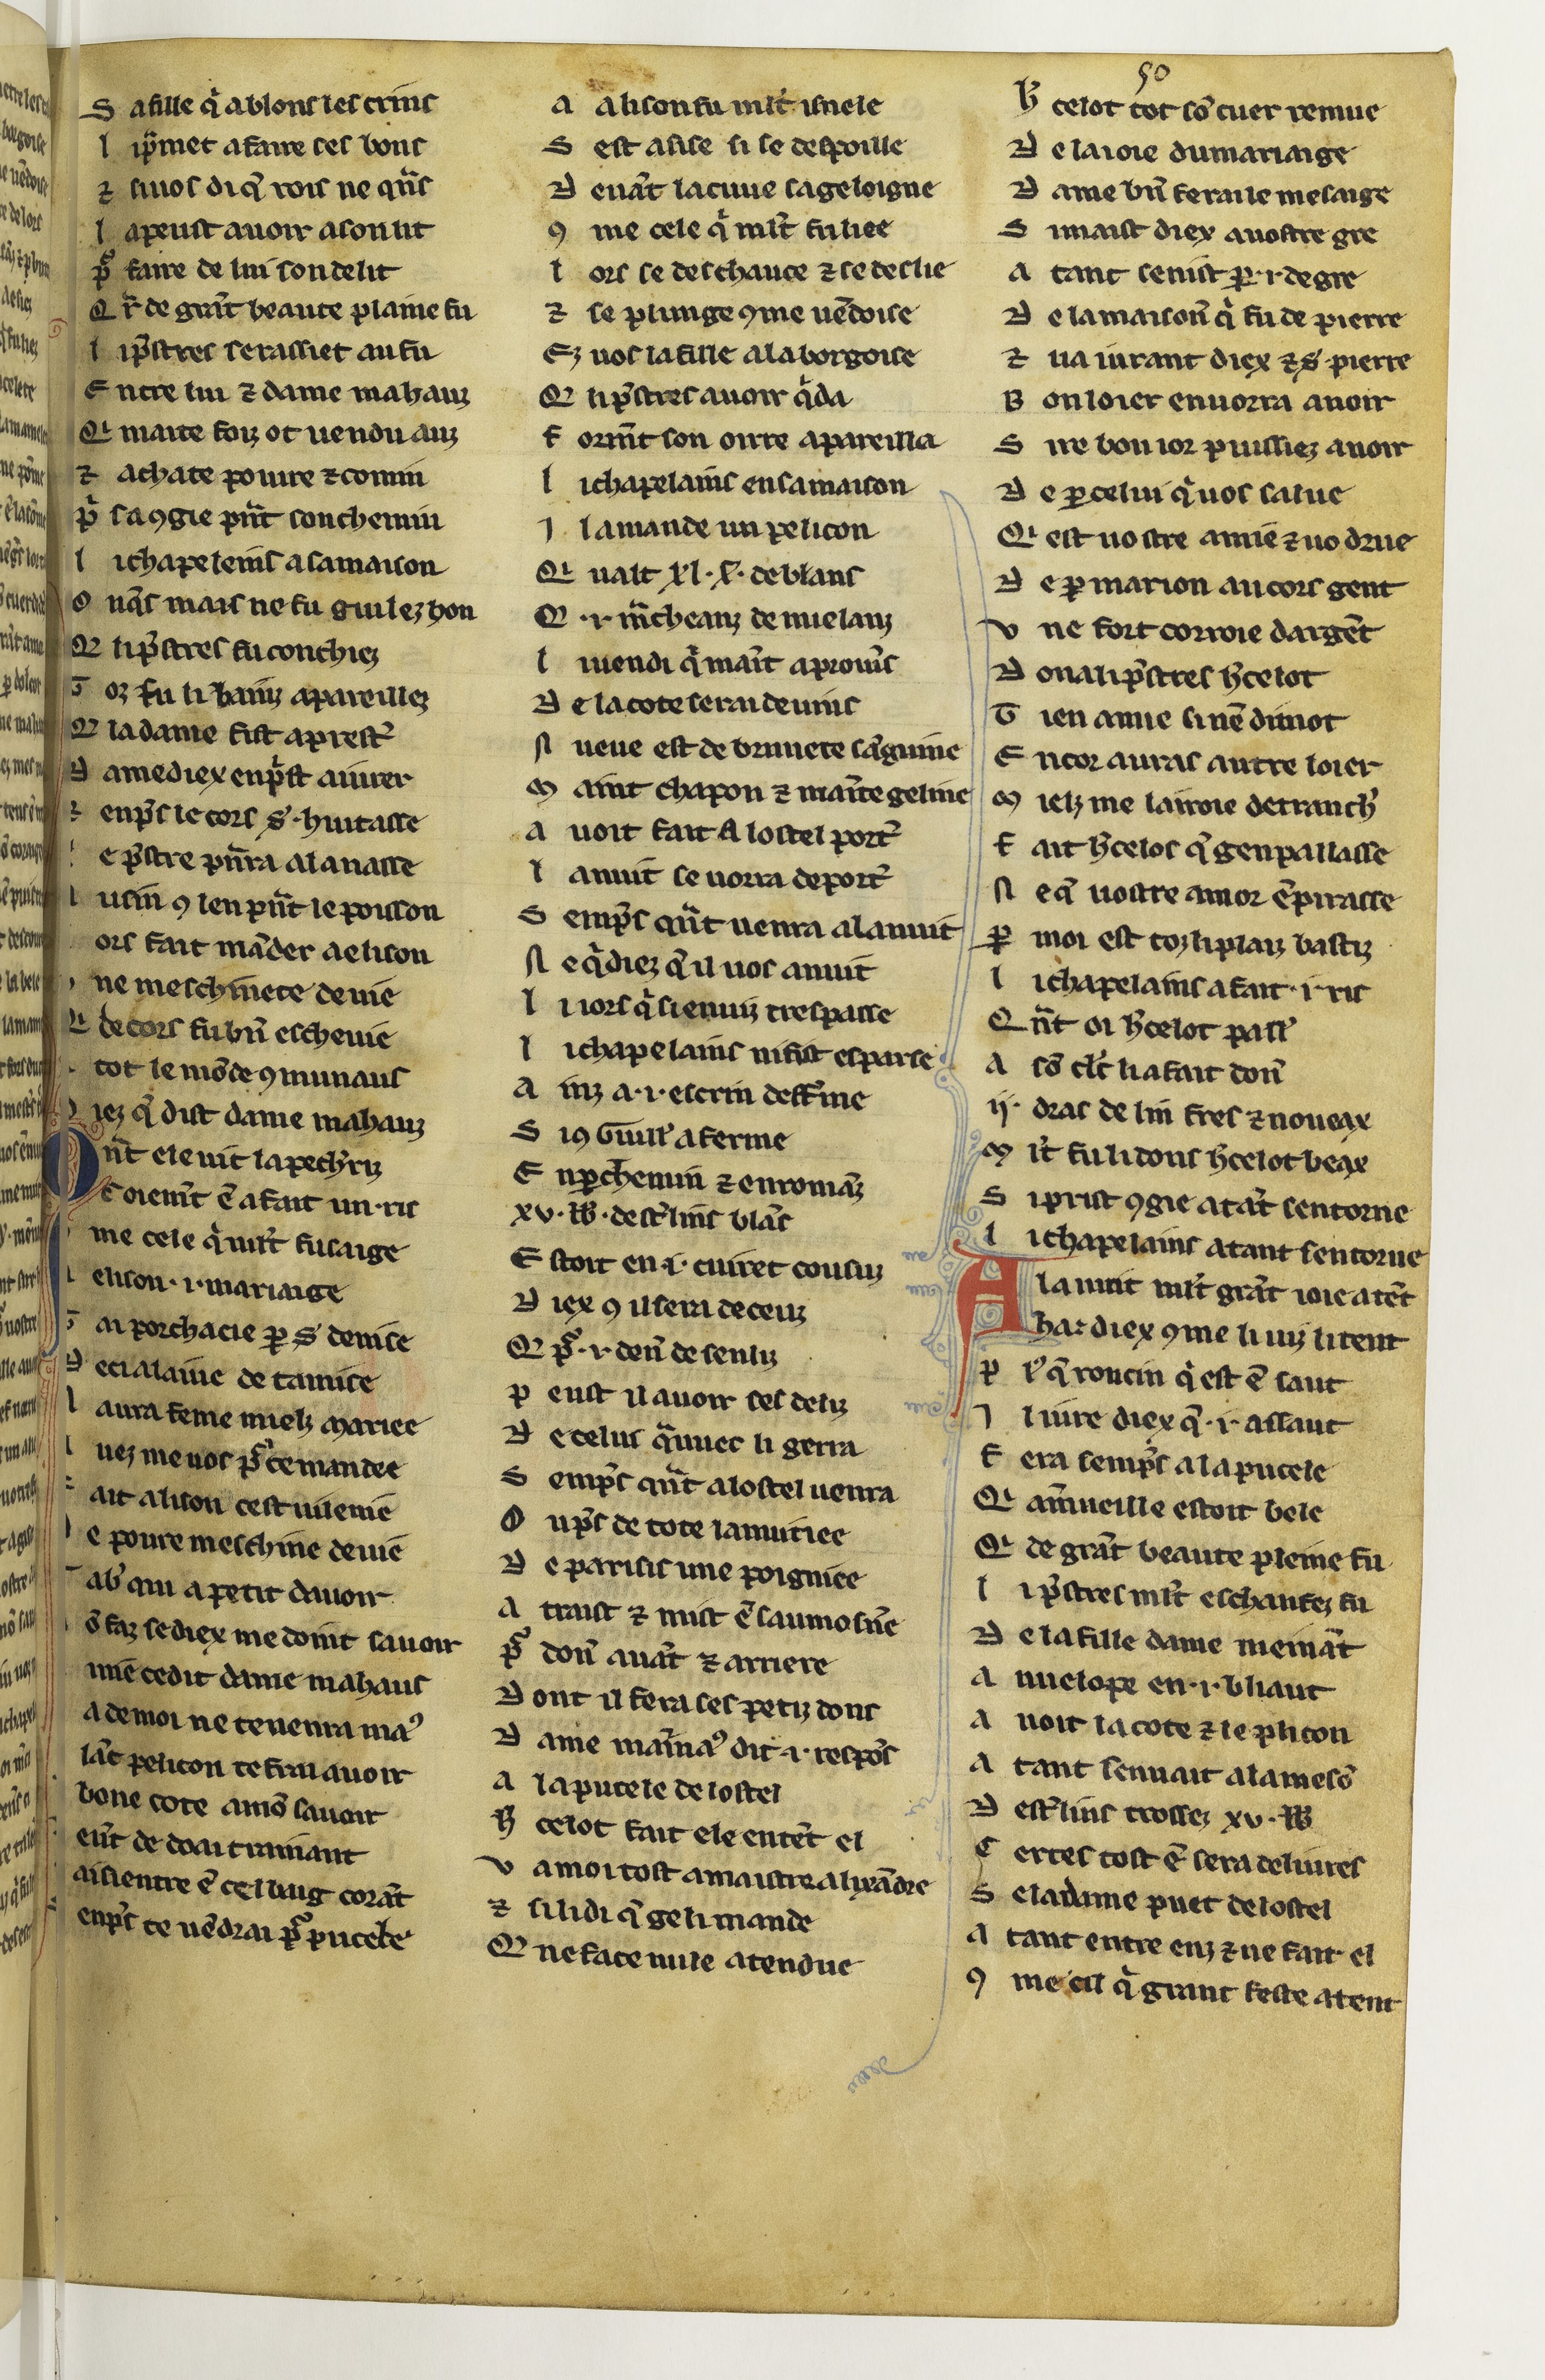 50
S a fille q̉ a blons les crins
l i p̃met a faire ses bons
⁊ si uos di q̃ rois ne q̃ns
l a peust auoir a son lit
p̉ faire de lui son delit
Q̃r de grãt beaute plaine fu
l i p̃stres serassiet au fu
E ntre lui ⁊ dame mahauz
Q̉ mainte foiz ot uendu auz
⁊ achate poiure ⁊ comin
p̉ sa ꝯgie pñt son chemin
l i chapeleins a sa maison
O nq̃s mais ne fu guilez hon
Q̃ li p̃stres fu conchiez
T oz fu li bainz apareillez
Q̃ la dame fist aprest̃
D amediex en p̃st a iurer
⁊ enp̃s le cors s̃. huitasse
e p̃stre pñra a la nasse
usin ꝯ len pñt le poisson
ors fait mãder aelison
ne meschinete de uie
Q̉ de cors fu bñ escheuie
tot le mõde ꝯmunaus
iez q̃ dist dame mahauz
Q ñt ele uit la pech̃riz
S oiemt̃ ẽ a fait un ris
me cele q̉ ml̃t fu saige
elison .i. mariaige
T ai porchacie ꝑ s̃ denise
D eci a laiue de tamise
l aura feme mielz mariee
uez me uos p̉ ce mandee
F ait alison cest uilenie
e poure meschine de uie
ab̃ qui a petit dauoir
õ faz se diex me doint sauoir
mie ce dit dame mahaus
a de moi ne te uenra maꝰ
lãc pelicon te ferai auoir
bone cote a mõ sauoir
eñt de doai trainant
aisientre ẽ cel baig corãt
enp̃s te uẽdrai p̉ pucele
A alison fu ml̃t isnele
S est asise si se despoille
D euãt la cuue sageloigne
ꝯ me cele q̉ ml̃t fu liee
l ors se deschauce ⁊ se deslie
⁊ se plunge ꝯme uẽdoise
Ez uos la fille a la borgoise
Q̃ li p̃stres auoir q̉da
F ormt̃ son oirre apareilla
l i chapelains en sa maison
I l amande un pelicon
Q̉ ualt xl. s̃. de blans
Q̃ .i. m̃cheanz de mielanz
l i uendi q̉ maĩt a prouĩs
D e la cote serai deuins
N ueue est de brunete sãguine
M aint chapon ⁊ mainte geline
A uoit fait a lostel port̃
l anuit se uorra deport̃
S emp̃s qñt uenra a la nuit
N e q̉diez q̃ il uos anuit
l i uors q̉ si enuiz trespasse
l i chapelains ni fist esparse
A inz a .i. escrin desferme
S i ꝯ Guill̃ aferme
E n ꝑchemin ⁊ en romãz
xv. lb̃. de st̃lins blãs
E stoit en .i. cuiret cousuz
D iex ꝯ il sera deceuz
Q̃ p̉ .i. deñ de senliz
P eust il auoir ses deliz
D e celui q̉ auuec li gerra
S emp̃s qñt a lostel uenra
O up̃s de tote la nuitiee
D e parisis une poigniee
A traist ⁊ mist ẽ saumosñe
p̉ doñ auãt ⁊ arriere
D ont il fera ses petiz dons
D ame maĩnaꝰ dit .i. respõs
A la pucele de lostel
H̃ celot fait ele entẽt el
V a moi tost a maistre alixãdre
⁊ si li di q̃ ge li mande
Q̃ ne face nule atendue
H̃ celot tot sõ cuer remue
D e la ioie du mariaige
D ame bñ ferai le mesaige
S i maist diex a uostre gre
A tant senist ꝑ .i. degre
D e la maisoñ q̉ fu de pierre
⁊ ua iurant diex ⁊ s̃. pierre
B on loier en uorra auoir
S ire bon ior puissiez auoir
D e ꝑ celui q̉ uos salue
Q̉ est uostre amie ⁊ uo drue
D e ꝑ marion au cors gent
V ne fort corroie dargẽt
D ona li p̃stres h̃celot
T ien amie si nẽ di mot
E ncor auras autre loier
M ielz me lairoie detranch̃
F ait h̃celos q̃ gen pallasse
N e q̃ uostre amor ẽpirasse
ꝑ moi est toz li plaiz bastiz
l i chapelains a fait .i. ris
Q ñt oi h̃celot pall̃
A sõ cl̃c li a fait doñ
ij. dras de lin fres ⁊ noueax
M l̃t fu li dons h̃celot beax
S i prist ꝯgie atãt sen torne
l i chapelains atant sen torne
A la nuit ml̃t grãt ioie atẽt
ha: diex ꝯme li uiz li tent
p lꝰ q̃ roncin q̉ est ẽ saut
I l iure diex q̃ .i. assaut
F era semp̃s a la pucele
Q̉ a m̃ueille estoit bele
Q̉ de grãt beaute pleine fu
l i p̃stres ml̃t eschaufez fu
D e la fille dame meinãt
A nuelope en .i. bliaut
A uoit la cote ⁊ le plicon
A tant senuait a la mesõ
D est̃lins trossez xv. lb̃
C ertes tost ẽ sera deliures
S e la dame puet de lostel
A tant entre enz ⁊ ne fait el
ꝯ me cil q̉ grant feste atent